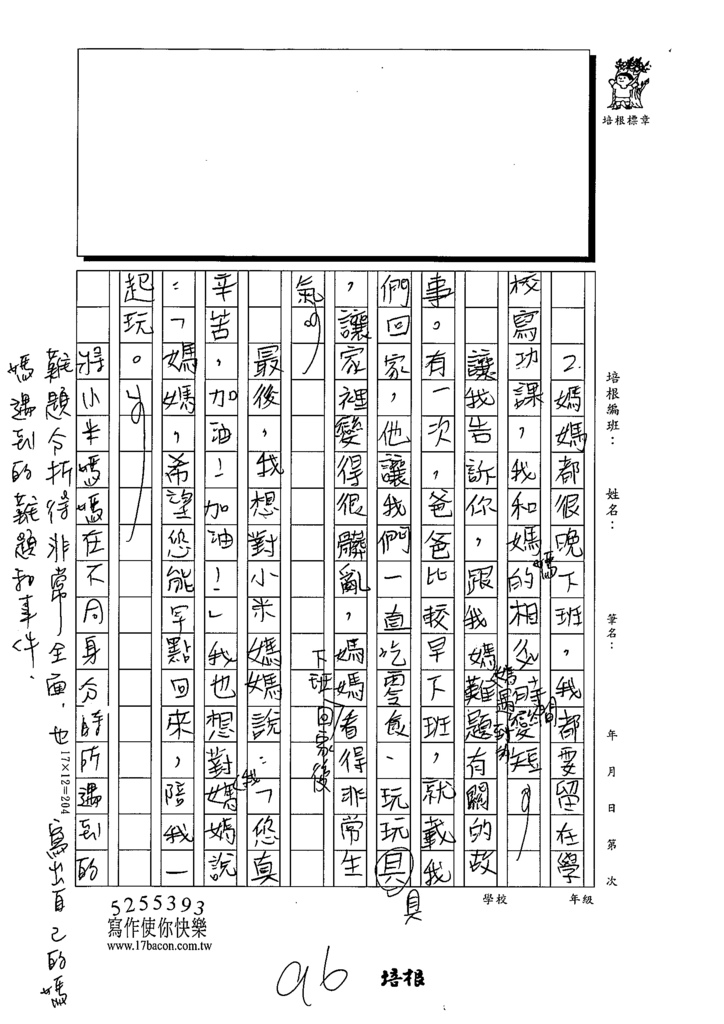 培根標章
培根編班：
姓名：
筆名：
年 月 日 第 次
學校
年級
2.媽媽都很晚下班，我都要留在學
校寫功課，我和媽的相處時間變短。
媽
讓我告訴你，跟我媽難題有關的故
媽遇到的
事。有一次，爸爸比較早下班，就載我
們回家，他讓我們一直吃零食、玩玩具
具
，讓家裡變得很髒亂，媽媽看得非常生
下班回家後
氣。
最後，我想對小米媽媽說：「您真
辛苦，加油！加油！」我也想對媽媽說
我
：「媽媽，希望您能早點回來，陪我一
起玩。
將小米媽媽在不同身分時所遇到的
難題分析得非常全面，也寫出自己的媽
媽遇到的難題和事件。
17×12=204
5255393
寫作使你快樂
www.17bacon.com.tw
96
培根